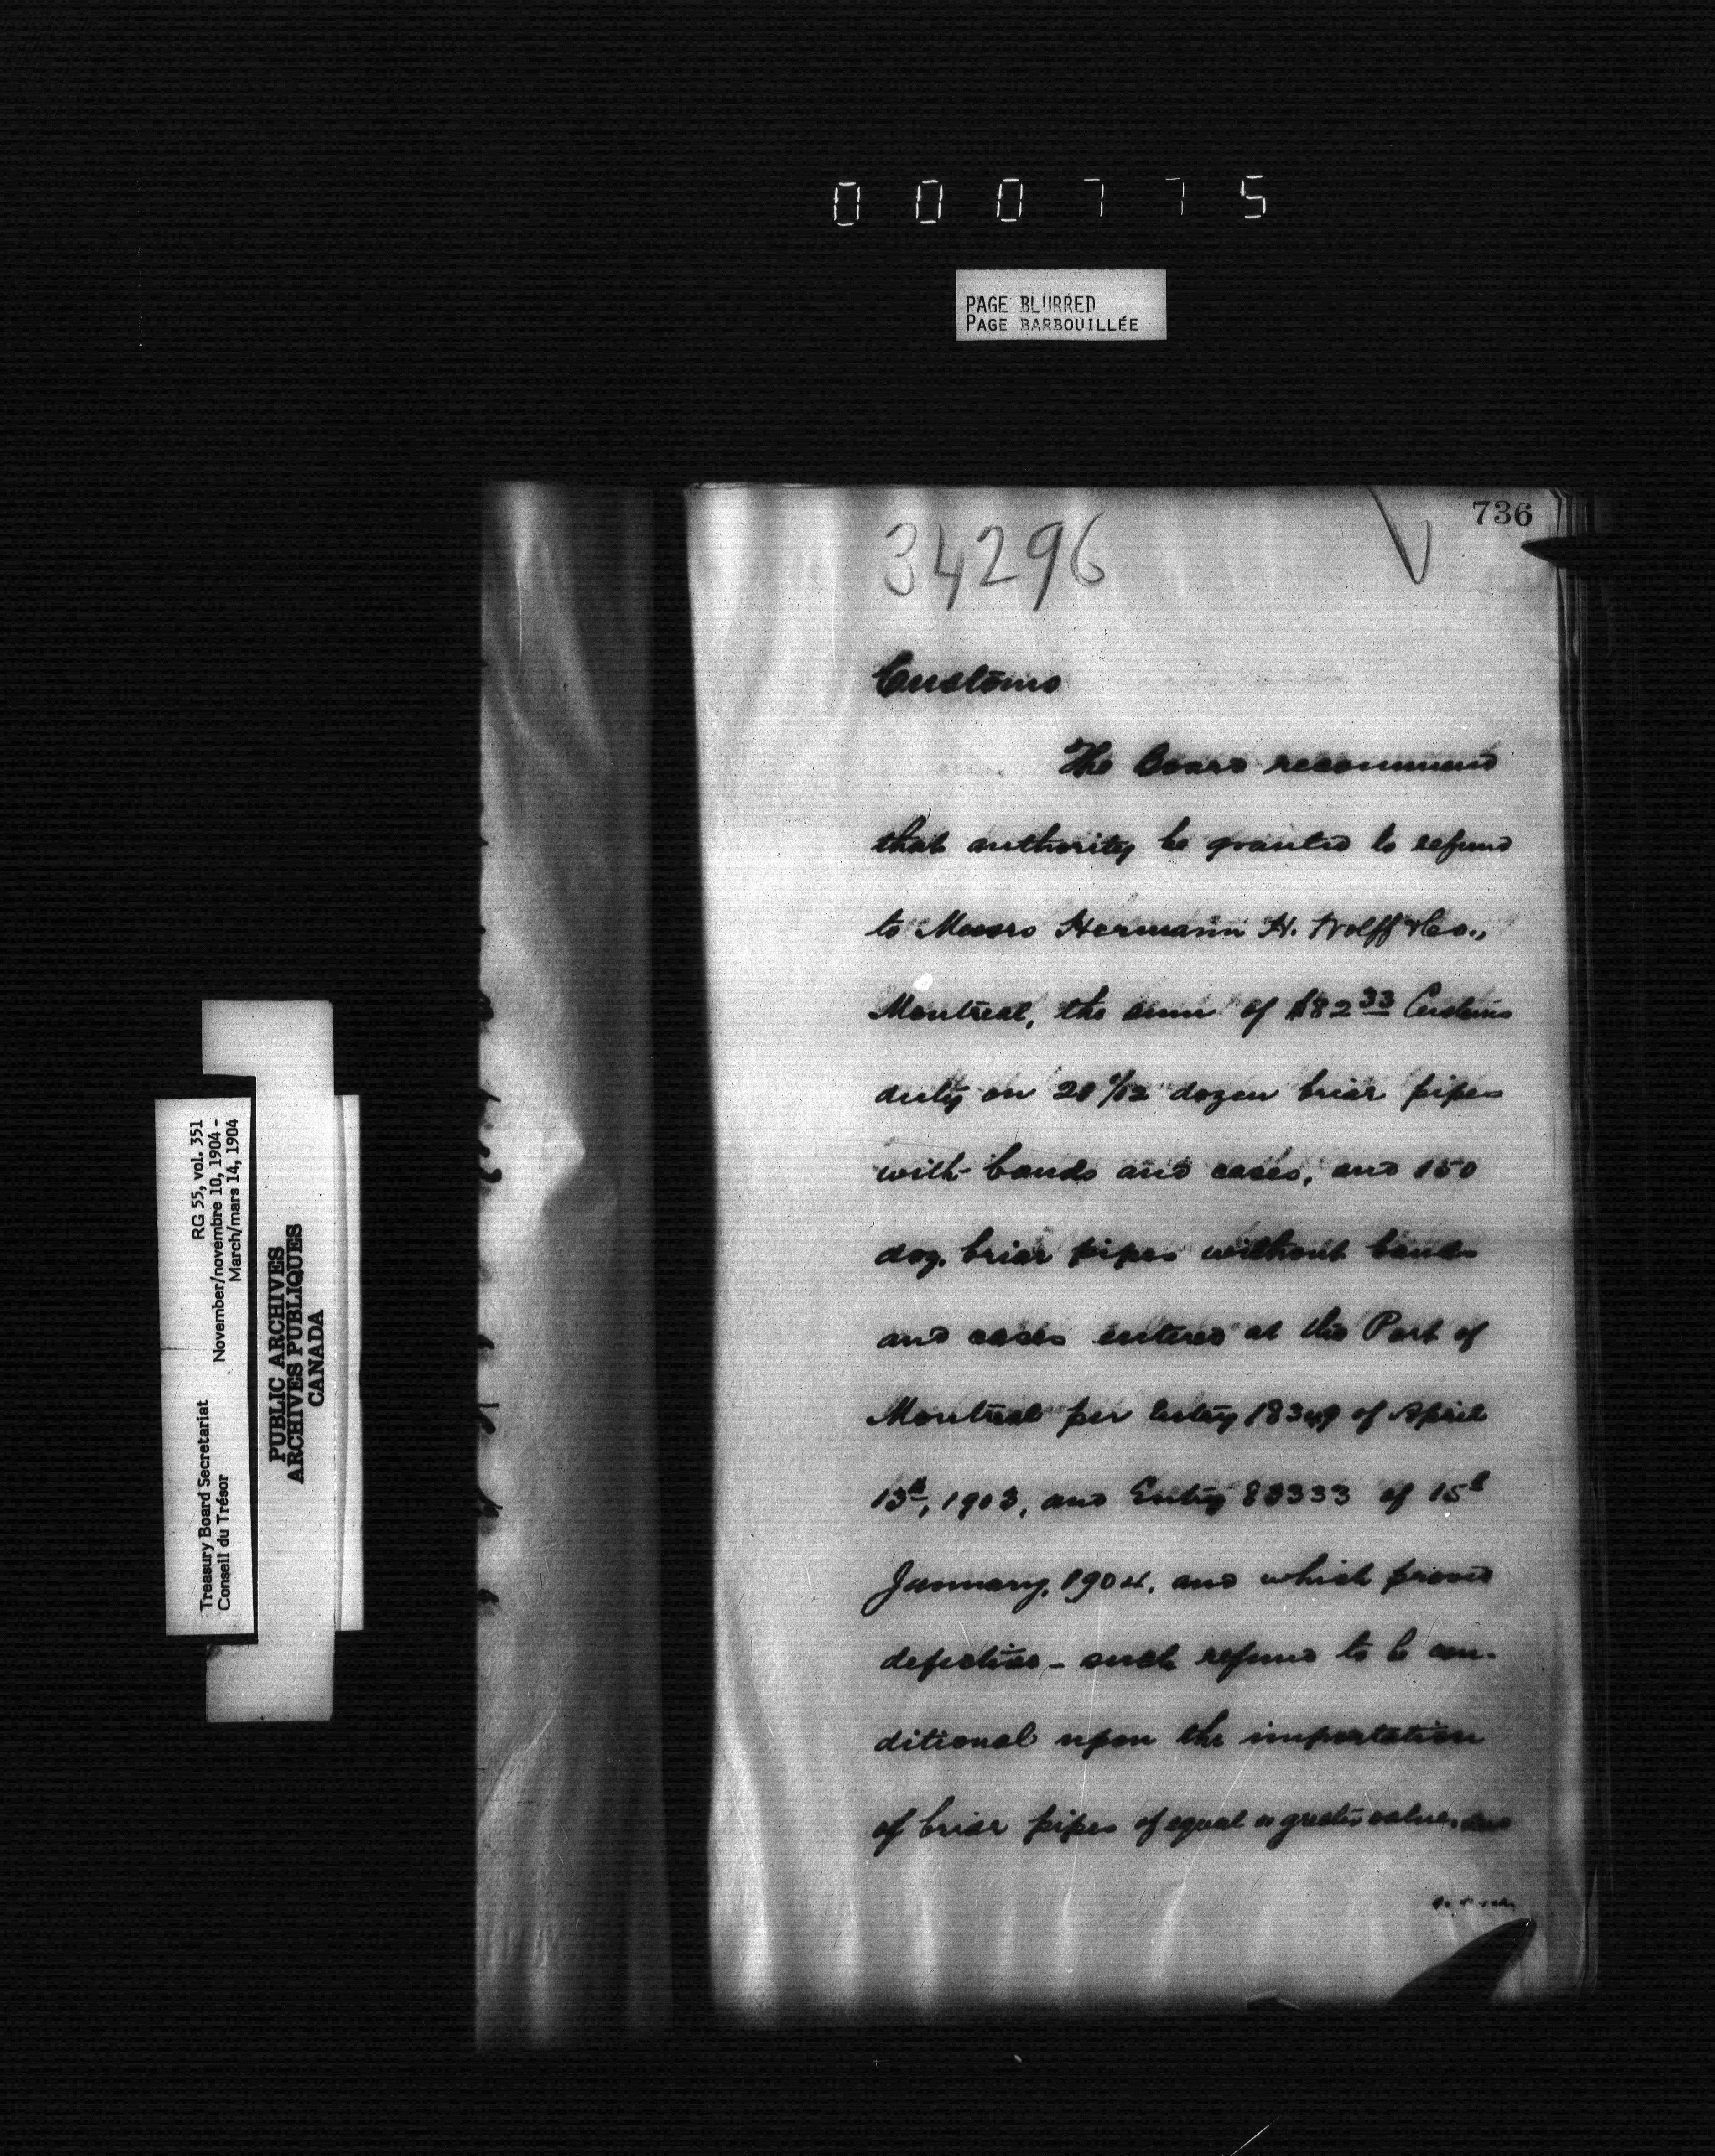 000775
PAGE BLURRED
PAGE BARBOUILLÉE
736
34296
Customs
The Board recommend
that authority be granted to refund
to Messrs Hermann H. Wolff & Co.,
Montreal, the sum of $82 33 Customs
duty on dozen briar pipes
with bands and cases, and 150
doz. briar pipes without bands
and cases entered at the Port of
Montreal per Entry 18349 of April
13th, 1903, and Entry 83333 of 15th
January, 1904, and which proved
defective - such refund to be con-
ditional upon the importation
of briar pipes of equal or greater value, and
Treasury Board Secretariat RG 55, vol. 351
Conseil du Trésor November/novembre 10, 1904 -
March/mars 14, 1904
PUBLIC ARCHIVES
ARCHIVES PUBLIQUES
CANADA